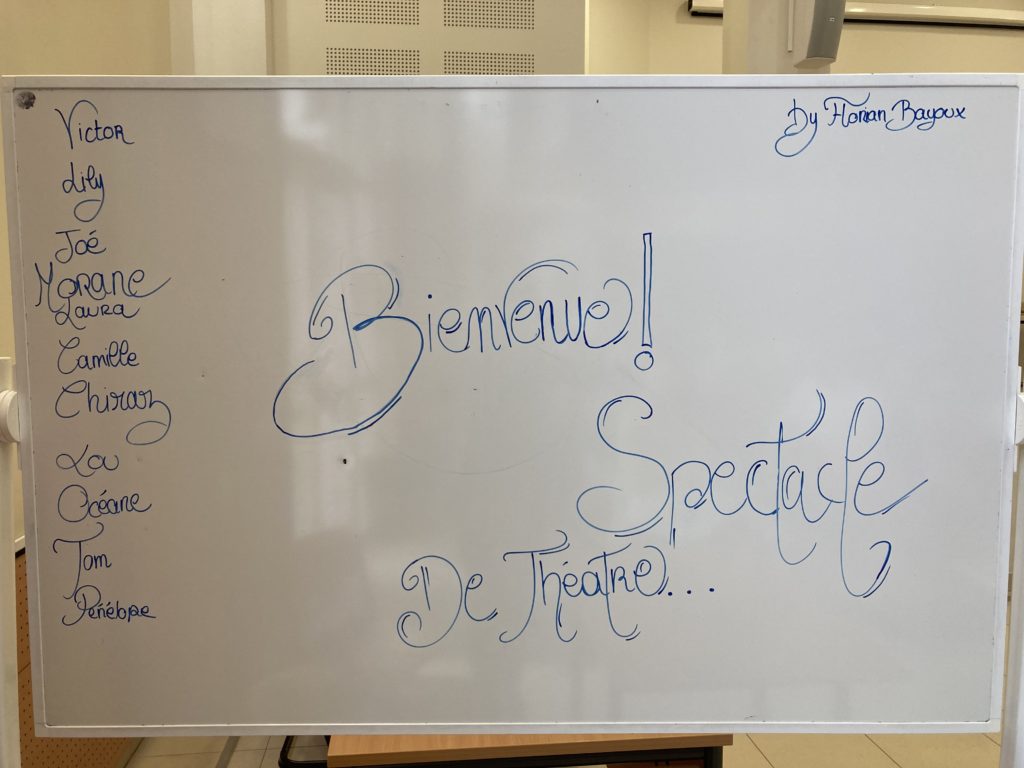 Victor
Lily
Joé
Morane
Laura
Camille
Chiraz
Lou
Océane
Tom
Pénélope
By Florian Bayoux
Bienvenue!
Spectacle
De Théatre...